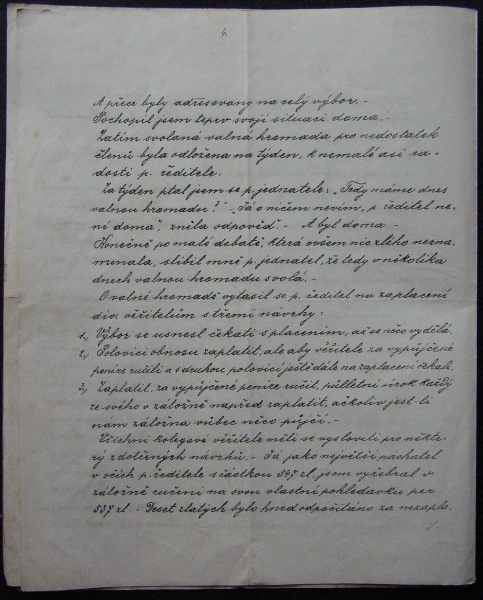 4.
A přece byly adresovany na celý výbor. -
Pochopil jsem teprv svoji situaci doma. -
Zatím svolaná valná hromada pro nedostatek
členů byla odložena na týden, k nemalé asi ra-
dosti p. ředitele.
Za týden ptal jsem se p. jednatele: „Tedy máme dnes
valnou hromadu?" - „Já o ničem nevím, p. ředitel ne-
ní doma", zněla odpověď. - A byl doma. -
Konečně po malé debatě, která ovšem nic zlého nezna-
menala, slíbil mně p. jednatel, že tedy o několika
dnech valnou hromadu svolá. -
O valné hromadě vytasil se p. ředitel na zaplacení
div. věřitelům s třemi návrhy:
1., Výbor se usnesl čekati s placením, až se něco vydělá.
2., Polovici obnosu zaplatit, ale aby věřitelé za vypůjčené
peníze ručili a s druhou polovicí ještě dále na zaplacení čekali.
3., Zaplatit, za vypůjčené peníze ručit, půlletní úrok každý
ze svého v záložně napřed zaplatit, ačkoliv jest-li
nám záložna vůbec něco půjčí. -
Všichni kolegové věřitelé měli se vysloviti pro někte-
rý z dotčených návrhů. - Já jako největší páchatel
v očích p. ředitele s částkou 547 zl. jsem vyžebral v
záložně ručení na svou vlastní pohledávku per
537 zl. - Deset zlatých bylo hned odpočítáno za nezapla-